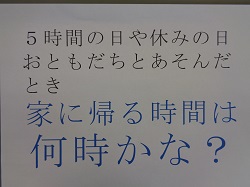 ５時間の日や休みの日
おともだちとあそんだ
とき
家に帰る時間は
何時かな？